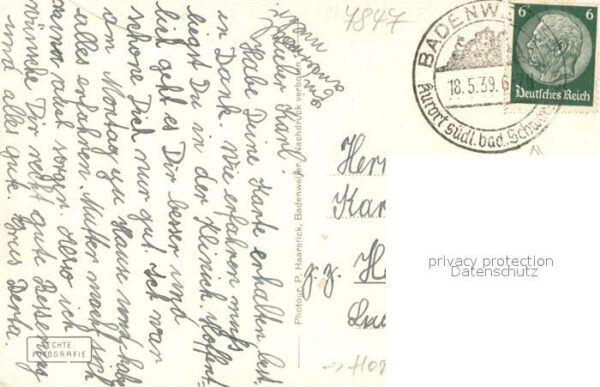 Lieber Karl!
Habe Deine Karte erhalten best.
in Dank. Wie erfahren mußt
liegst Du in der Klinik, hoffent-
lich geht es Dir besser und
schone Dich nur gut. Ich war
am Montag zu Haus und habe
alles erfahren. Mutter macht sich
darum auch sorgen. Also ich
wünsche Dir recht gut Besserung
und alles gute. Grus Berta.
7847
BADENW
18.5.39.6
Kurort südl. bad. Schwarz
6 6
Deutsches Reich
Photogr. P. Haarstick, Badenweiler, Nachdruck verboten
ECHTE
FOTOGRAFIE
Herr
Kar
z. Z.
privacy protection
Datenschutz